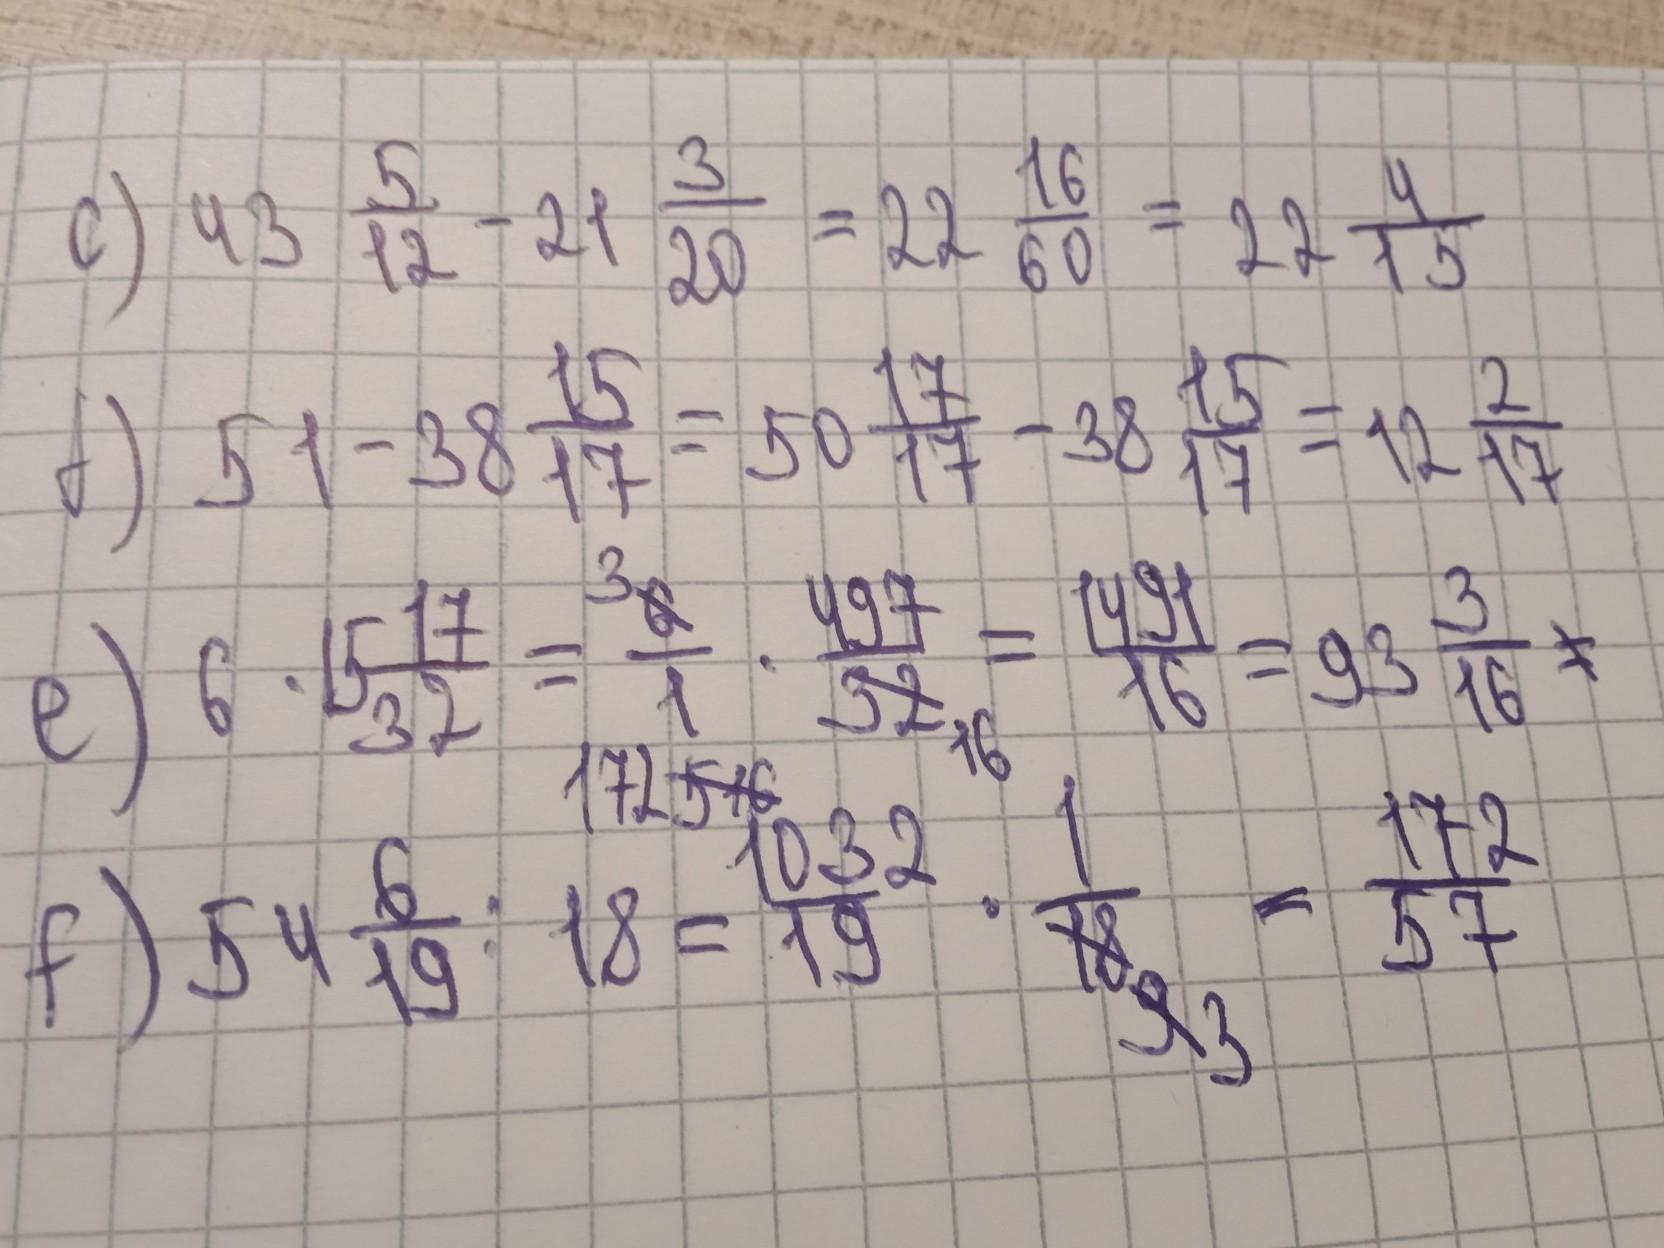 c) 43 5/12 - 21 3/20 = 22 16/60 = 22 4/15
d) 51 - 38 15/17 = 50 17/17 - 38 15/17 = 12 2/17
e) 6 · 15 17/32 = 3 6/1 · 497/32 16 = 1491/16 = 93 3/16
172 516
f) 54 6/19 : 18 = 1032/19 · 1/18 = 172/57
9 3